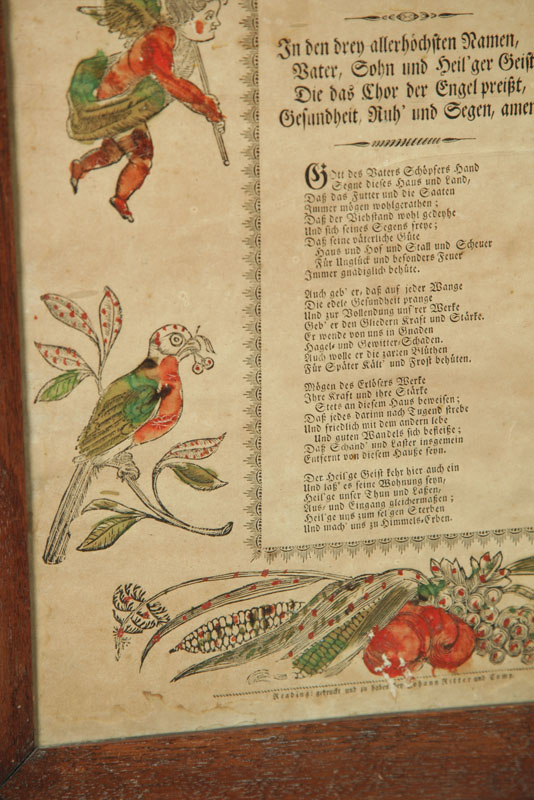 In den drey allerhöchsten Namen,
Vater, Sohn und Heil'ger Geist
Die das Chor der Engel preißt,
Gesundheit, Ruh' und Segen, amen
Gott des Vaters Schöpfers Hand
Segne dieses Haus und Land,
Daß das Futter und die Saaten
Immer mögen wohlgerathen;
Daß der Viehstand wohl gedeyhe
Und sich seines Segens freye;
Daß seine väterliche Güte
Haus und Hof und Stall und Scheuer
Für Unglück und besonders Feuer
Immer gnädiglich behüte.
Auch geb' er, daß auf jeder Wange
Die edele Gesundheit prange
Und zur Vollendung uns'rer Werke
Geb' er den Gliedern Kraft und Stärke.
Er wende von uns in Gnaden
Hagel- und Gewitter-Schaden.
Auch wolle er die zarten Blüthen
Für Später Kält' und Frost behüten.
Mögen des Erlösers Werke
Ihre Kraft und ihre Stärke
Stets an diesem Haus beweisen;
Daß jedes darinn nach Tugend strebe
Und friedlich mit dem andern lebe
Und guten Wandels sich befleiße;
Daß Schand' und Laster insgemein
Entfernt von diesem Hauße seyn.
Der Heil'ge Geist kehr hier auch ein
Und laß' es seine Wohnung seyn,
Heil'ge unser Thun und Laßen,
Aus- und Eingang gleichermaßen;
Heil'ge uns zum sel'gen Sterben
Und mach' uns zu Himmels-Erben.
Reading: gedruckt und zu haben bey Johann Ritter und Comp.